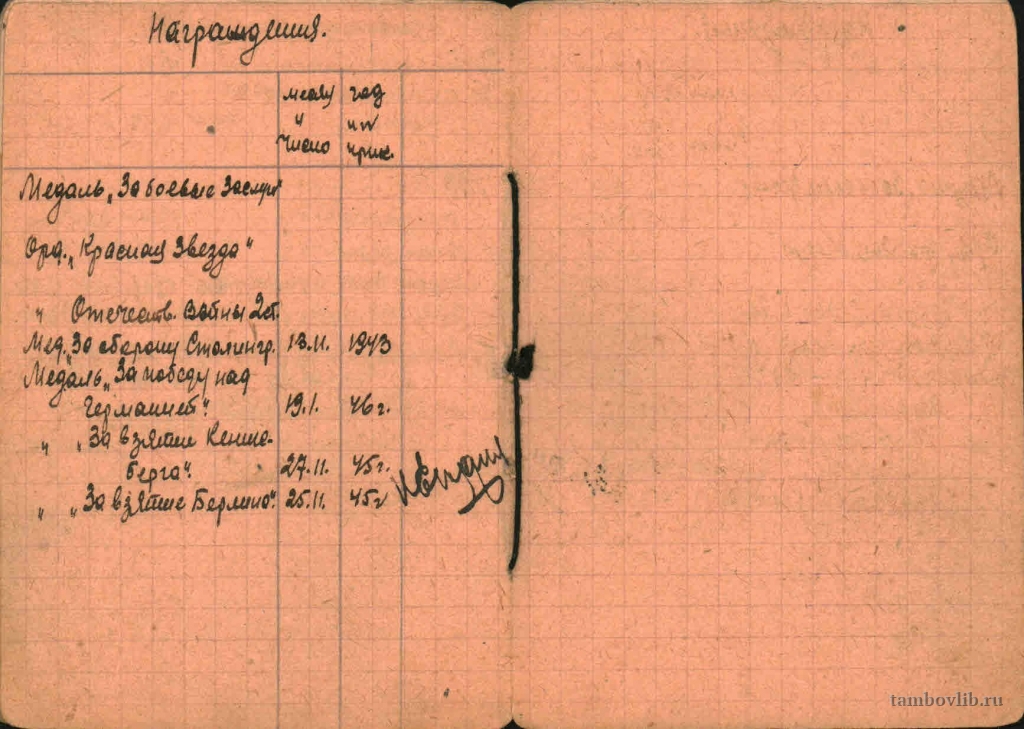 Награждения.
месяц год
и ип
число прик.
Медаль „За боевые Заслуги"
Орд. „Красная Звезда"
" Отечеств. Войны 2 ст.
Мед. „За оборону Сталингр. 13.11. 1943
Медаль „За победу над
Германией". 19.1. 46 г.
" „За взятие Кениг-
берга". 27.11. 45 г.
" „За взятие Берлина". 25.11. 45 г
tambovlib.ru